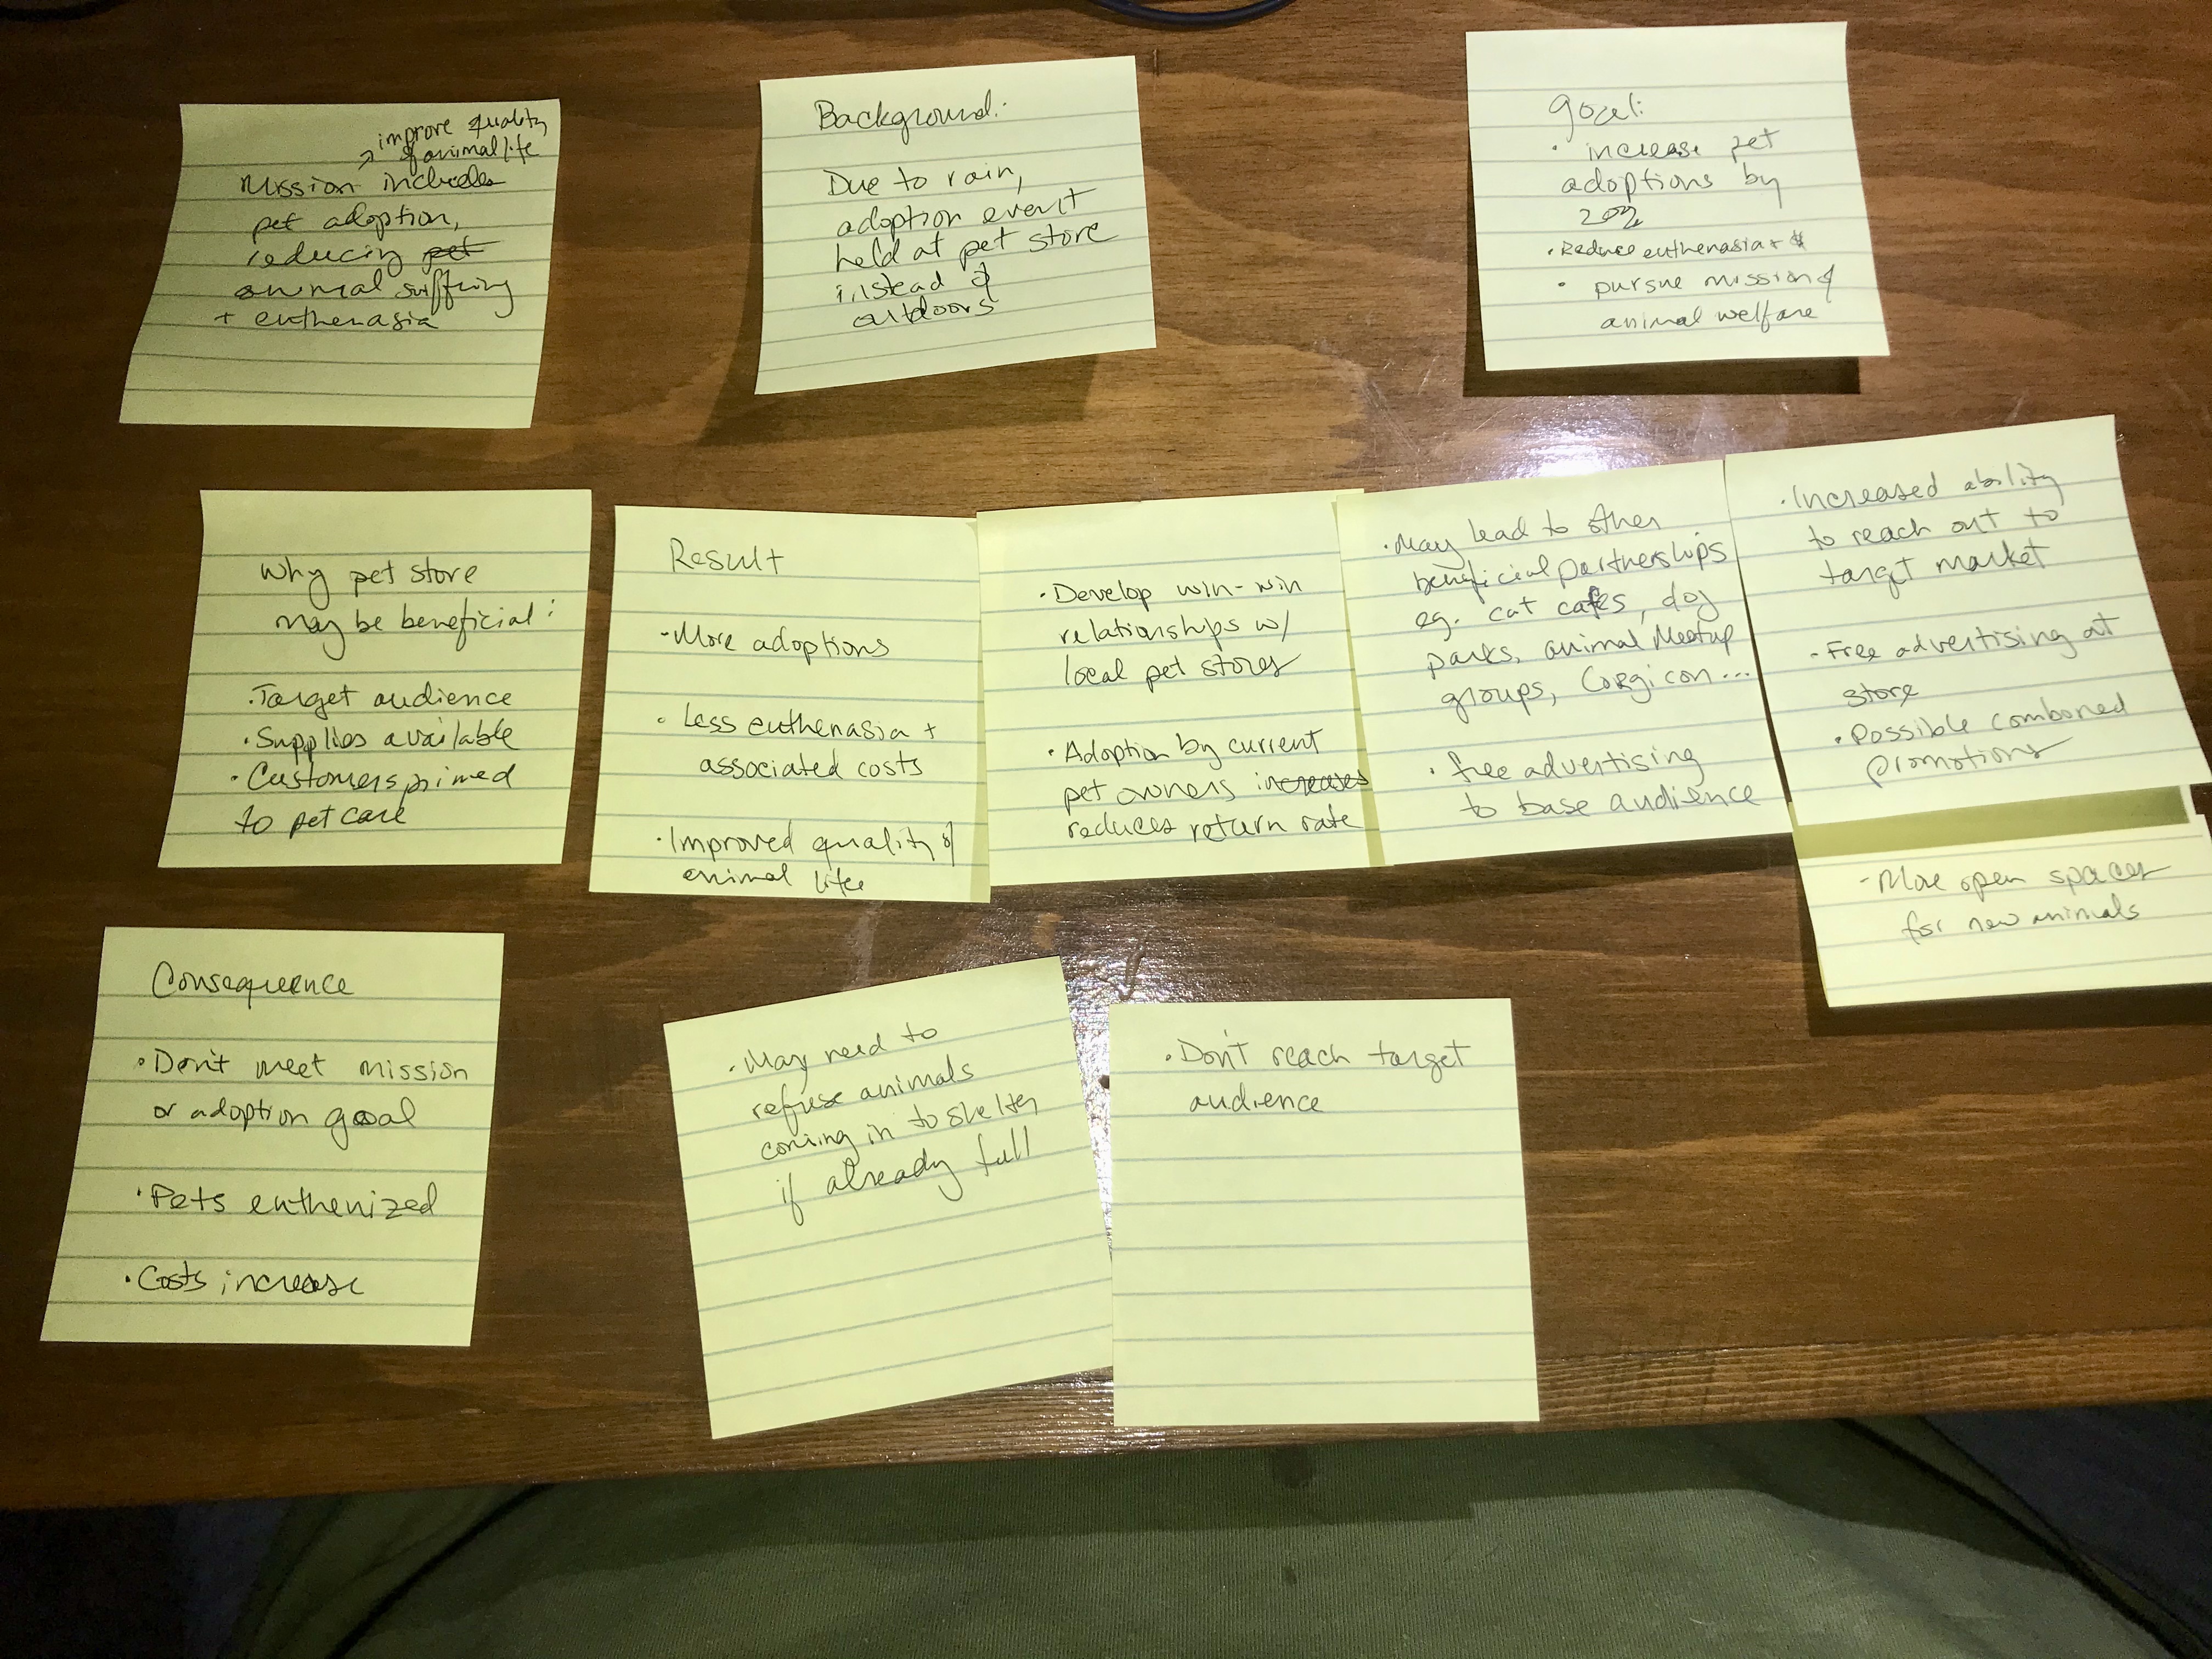 improve quality
of animal life
Mission includes
pet adoption,
reducing pet
animal suffring
+ euthenasia
Background:
Due to rain,
adoption event
held at pet store
instead of
outdoors
Goal:
• increase pet
adoptions by
20%
• Reduce euthenasia + $
• pursue mission of
animal welfare
Why pet store
may be beneficial:
• Target audience
• Supplies available
• Customers primed
to pet care
Result
• More adoptions
• Less euthenasia +
associated costs
• Improved quality of
animal life
• Develop win-win
relationships w/
local pet stores
• Adoption by current
pet owners increases
reduces return rate
• May lead to other
beneficial partnerships
eg. cat cafes, dog
parks, animal Meetup
groups, Corgi con...
• free advertising
to base audience
• Increased ability
to reach out to
target market
• Free advertising at
store
• Possible comboned
promotions
- More open spaces
for new animals
Consequence
• Don't meet mission
or adoption goal
• Pets euthenized
• Costs increase
• May need to
refuse animals
coming in to shelter
if already full
• Don't reach target
audience